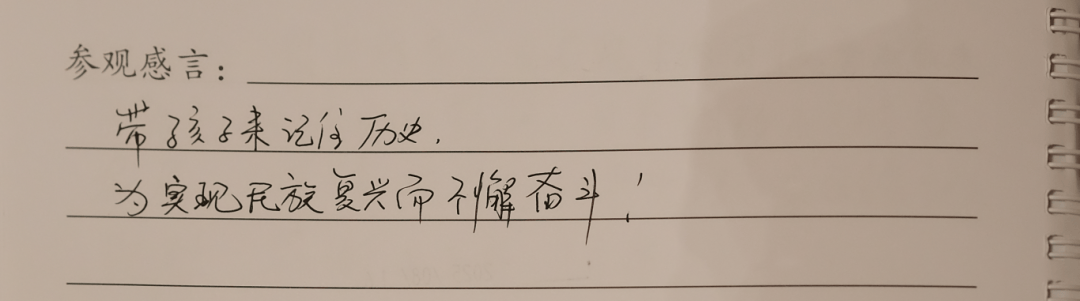 参观感言：
带孩子来记住历史，
为实现民族复兴而不懈奋斗！